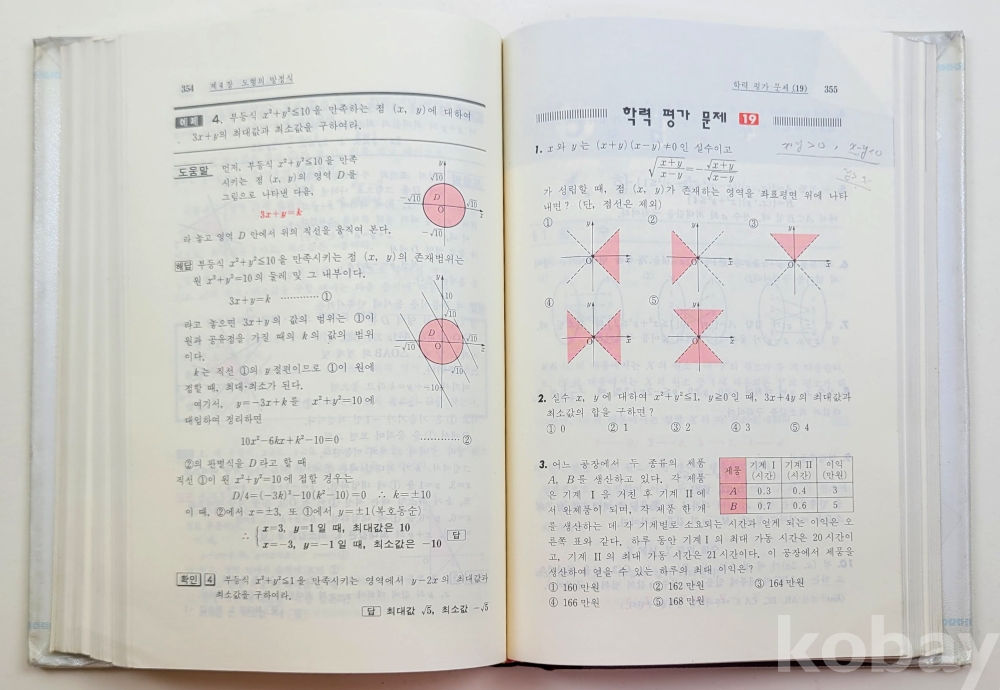 354 제 4 장 도형의 방정식
예제 4. 부등식 x²+y²≦10을 만족하는 점 (x, y)에 대하여
3x+y의 최대값과 최소값을 구하여라.
도움말 먼저, 부등식 x²+y²≦10을 만족
시키는 점 (x, y)의 영역 D를
그림으로 나타낸 다음,
3x+y=k
라 놓고 영역 D 안에서 위의 직선을 움직여 본다.
y
√10
D
-√10
O
√10
x
-√10
해답 부등식 x²+y²≦10을 만족시키는 점 (x, y)의 존재범위는
원 x²+y²=10의 둘레 및 그 내부이다.
3x+y=k ………… ①
라고 놓으면 3x+y의 값의 범위는 ①이
원과 공유점을 가질 때의 k의 값의 범위
이다.
k는 직선 ①의 y절편이므로 ①이 원에
접할 때, 최대·최소가 된다.
여기서, y=-3x+k를 x²+y²=10에
대입하여 정리하면
y
10
√10
D
√10
-√10
O
x
-√10
-10
10x²-6kx+k²-10=0 ………… ②
②의 판별식을 D라고 할 때
직선 ①이 원 x²+y²=10에 접할 경우는
D/4=(-3k)²-10(k²-10)=0 ∴ k=±10
이 때, ②에서 x=±3, 또 ①에서 y=±1(복호동순)
∴ { x=3, y=1일 때, 최대값은 10
x=-3, y=-1일 때, 최소값은 -10 답
확인 4 부등식 x²+y²≦1을 만족시키는 영역에서 y-2x의 최대값과
최소값을 구하여라.
답 최대값 √5, 최소값 -√5
학력 평가 문제 (19) 355
학력 평가 문제 19
1. x와 y는 (x+y)(x-y)≠0인 실수이고
x+y>0, x-y<0
√((x+y)/(x-y)) = -√(x+y)/√(x-y)
가 성립할 때, 점 (x, y)가 존재하는 영역을 좌표평면 위에 나타
내면? (단, 점선은 제외)
① ② ③
y y y
O x O x O x
④ ⑤
y y
O x O x
2. 실수 x, y에 대하여 x²+y²≦1, y≧0일 때, 3x+4y의 최대값과
최소값의 합을 구하면?
① 0 ② 1 ③ 2 ④ 3 ⑤ 4
3. 어느 공장에서 두 종류의 제품
A, B를 생산하고 있다. 각 제품
은 기계 I 을 거친 후 기계 II에
서 완제품이 되며, 각 제품 한 개
제품 기계 I (시간) 기계 II (시간) 이익 (만원)
A 0.3 0.4 3
B 0.7 0.6 5
를 생산하는 데 각 기계별로 소요되는 시간과 얻게 되는 이익은 오
른쪽 표와 같다. 하루 동안 기계 I 의 최대 가동 시간은 20시간이
고, 기계 II의 최대 가동 시간은 21시간이다. 이 공장에서 제품을
생산하여 얻을 수 있는 하루의 최대 이익은?
① 160만원 ② 162만원 ③ 164만원
④ 166만원 ⑤ 168만원
kobay